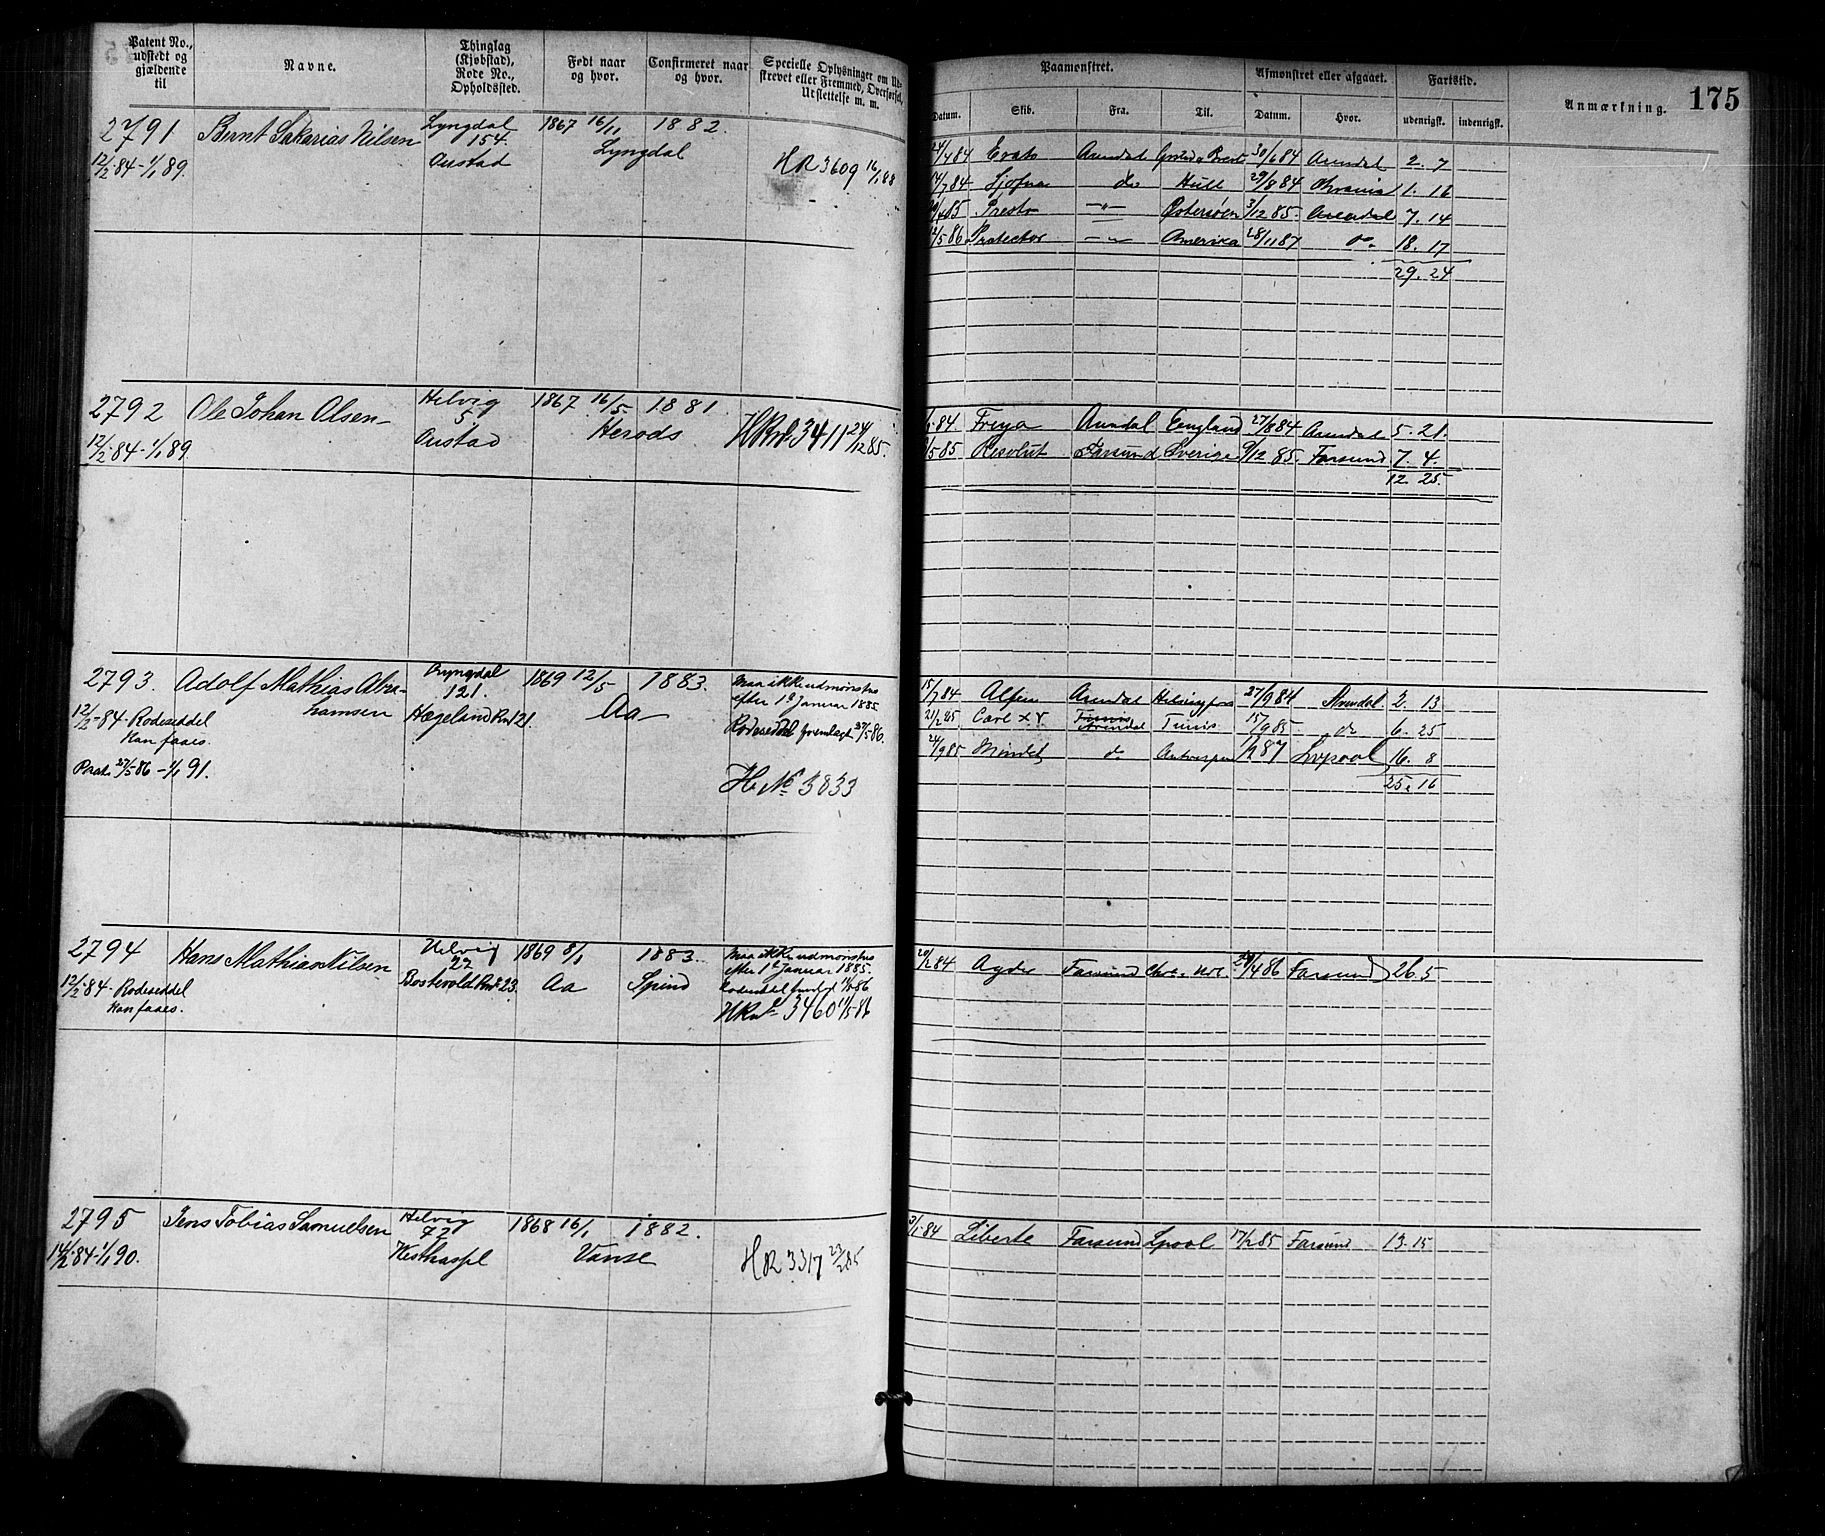 Patent No.,
udstedt og
gjældende
til
Navne.
Thinglag
(Kjøbstad),
Rode No.,
Opholdssted.
Født naar
og hvor.
Confirmeret naar
og hvor.
Specielle Oplysninger om Ud-
skrevet eller Fremmed, Overførsel,
Udslettelse m. m.
Paamønstret.
Afmønstret eller afgaaet.
Fartstid.
Anmærkning.
175
Datum.
Skib.
Fra.
Til.
Datum.
Hvor.
udenrigsk.
indenrigsk.
2791 Bernt Sakarias Nilsen Lyngdal 1867 16/11 1882.
154. Lyngdal
12/2 84 - 1/1 89. Austad HR 3609 16/1 88
24/4 84 Arendal 30/6 84 Arendal 2. 7
14/7 84 Sjofna do Hull 29/8 84 1. 16
85 Presto -"- Østersøen 3/12 85. Arendal 7. 14
12/5 86 Protector -"- Amerika 28/11 87 do. 18. 17
29. 24
2792 Ole Johan Olsen Helvig 1867 16/5. 1881.
5. Herods
12/2 84 - 1/1 89. Austad 3411 24/12 85.
84. Freya Arendal England 27/8 84 Arendal 5. 21.
/5 85 Resolut Farsund Sverige 9/12 85. Farsund 7. 4.
12. 25.
2793. Adolf Mathias Abra- 1869 12/5 1883. Maa ikke udmønstres
hamsen 121. Aa efter 1ste Januar 1885
12/2 - 84 - Rodeseddel Hægeland Rno 121. Rodeseddel fremlagt 27/5 86.
Kan faaes.
Pat. 27/5 86 - 1/1 91. H. No 3833
15/7 84 Alfen Arendal Helsingfors 27/9 84 Arendal 2. 13
21/2 85 Carl XV Tunis 15/9 85 do 6. 25
Arendal
24/9 85 Mindet do Antwerpen 1/2 87 Livpool 16. 8
25. 16
2794 Hans Mathias Nilsen Helvig 1869 8/1 1883. Maa ikke udmønstres
22 Aa Spind efter 1ste Januar 1885.
12/2 - 84 - Rodeseddel Bostevold Rno 23.
Kan faaes. 3460 11/5 86
20/2 84 Agder Farsund 29/4 86 Farsund 26. 5
2795 Jens Tobias Samuelsen Helvig 1868 16/1 1882.
72 Vanse
14/2 84 - 1/1 90. Kisthassel HR 3317 23/2 85
3/ 84 Liberte Farsund Lpool 17/2 85 Farsund 13. 15